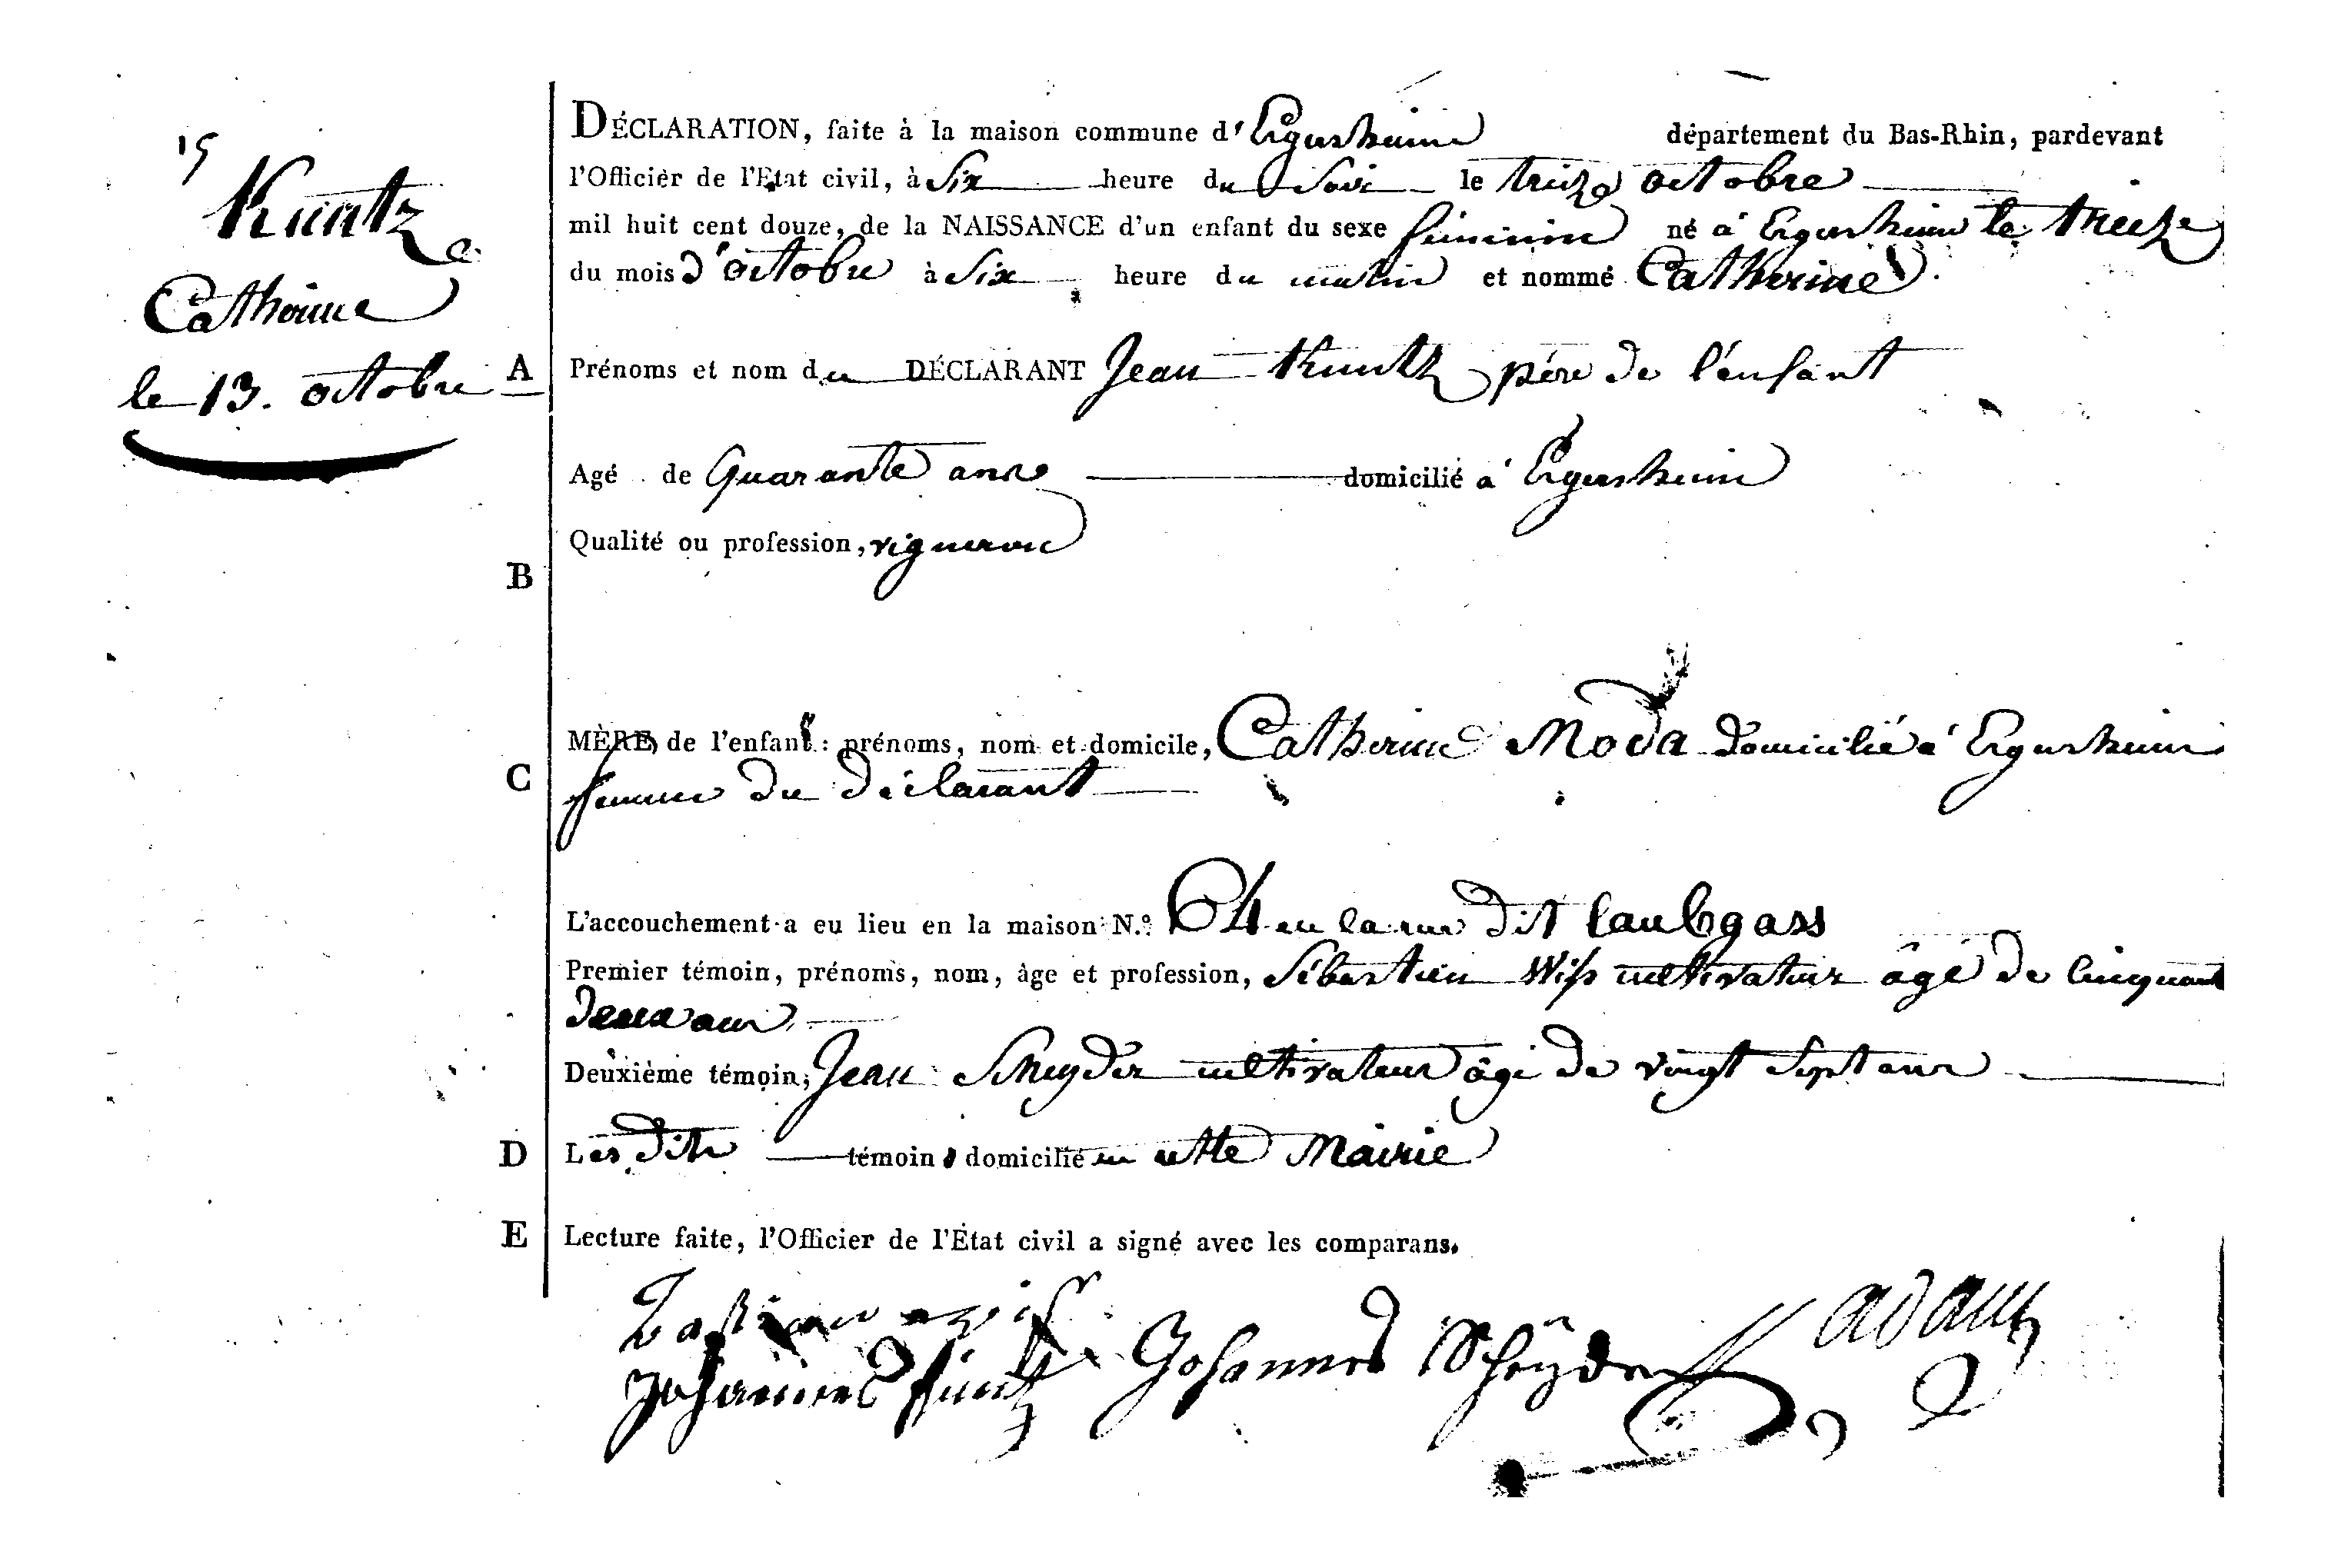 15
Kuntz
Catherine
le 13. octobre
DÉCLARATION, faite à la maison commune d'Ergersheim département du Bas-Rhin, pardevant
l'Officier de l'Etat civil, à Six heure du Soir le treize octobre
mil huit cent douze, de la NAISSANCE d'un enfant du sexe feminin né à Ergersheim le treize
du mois d'octobre à Six heure du matin et nommé Catherine
A Prénoms et nom du DÉCLARANT Jean Kuntz père de l'enfant
Agé de Quarante ans domicilié à Ergersheim
Qualité ou profession, vigneron
B
MÈRE de l'enfant : prénoms, nom et domicile, Catherine Moda domicilié à Ergersheim
C femme du déclarant
L'accouchement a eu lieu en la maison N.º 64 en la rue dit laubgass
Premier témoin, prénoms, nom, âge et profession, Sébastien Wiss cultivateur âgé de Cinquant
deux ans
Deuxième témoin, Jean Schnyder cultivateur âgé de vingt Sept ans
D Les dits témoins domicilié en cette Mairie
E Lecture faite, l'Officier de l'État civil a signé avec les comparans.
adam
Johannes Kuntz Johannes